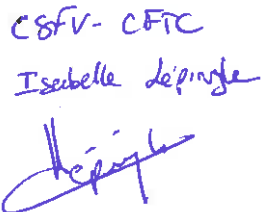 CSFV - CFTC
Isabelle Lépingle
Lépingle